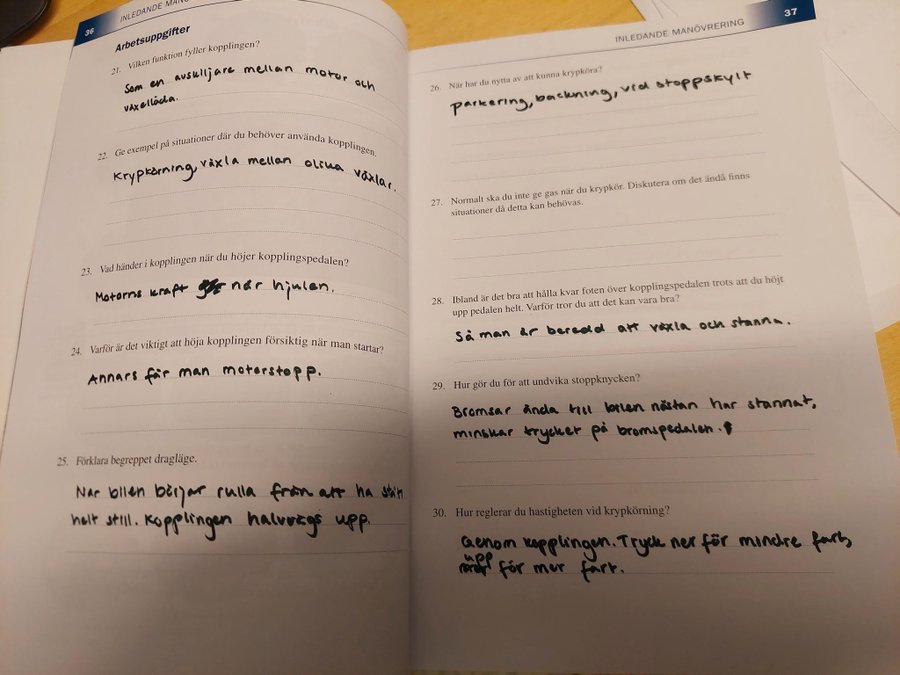 36
INLEDANDE MANÖ
Arbetsuppgifter
21. Vilken funktion fyller kopplingen?
Som en avskiljare mellan motor och
växellåda.
22. Ge exempel på situationer där du behöver använda kopplingen.
Krypkörning, växla mellan olika växlar.
23. Vad händer i kopplingen när du höjer kopplingspedalen?
Motorns kraft når hjulen.
24. Varför är det viktigt att höja kopplingen försiktig när man startar?
Annars får man motorstopp.
25. Förklara begreppet dragläge.
När bilen börjar rulla från att ha stått
helt still. Kopplingen halvvägs upp.
INLEDANDE MANÖVRERING
37
26. När har du nytta av att kunna krypköra?
parkering, backning, vid stoppskylt
27. Normalt ska du inte ge gas när du krypkör. Diskutera om det ändå finns
situationer då detta kan behövas.
28. Ibland är det bra att hålla kvar foten över kopplingspedalen trots att du höjt
upp pedalen helt. Varför tror du att det kan vara bra?
Så man är beredd att växla och stanna.
29. Hur gör du för att undvika stoppknycken?
Bromsar ända till bilen nästan har stannat,
minskar trycket på bromspedalen.
30. Hur reglerar du hastigheten vid krypkörning?
Genom kopplingen. Tryck ner för mindre fart,
upp för mer fart.